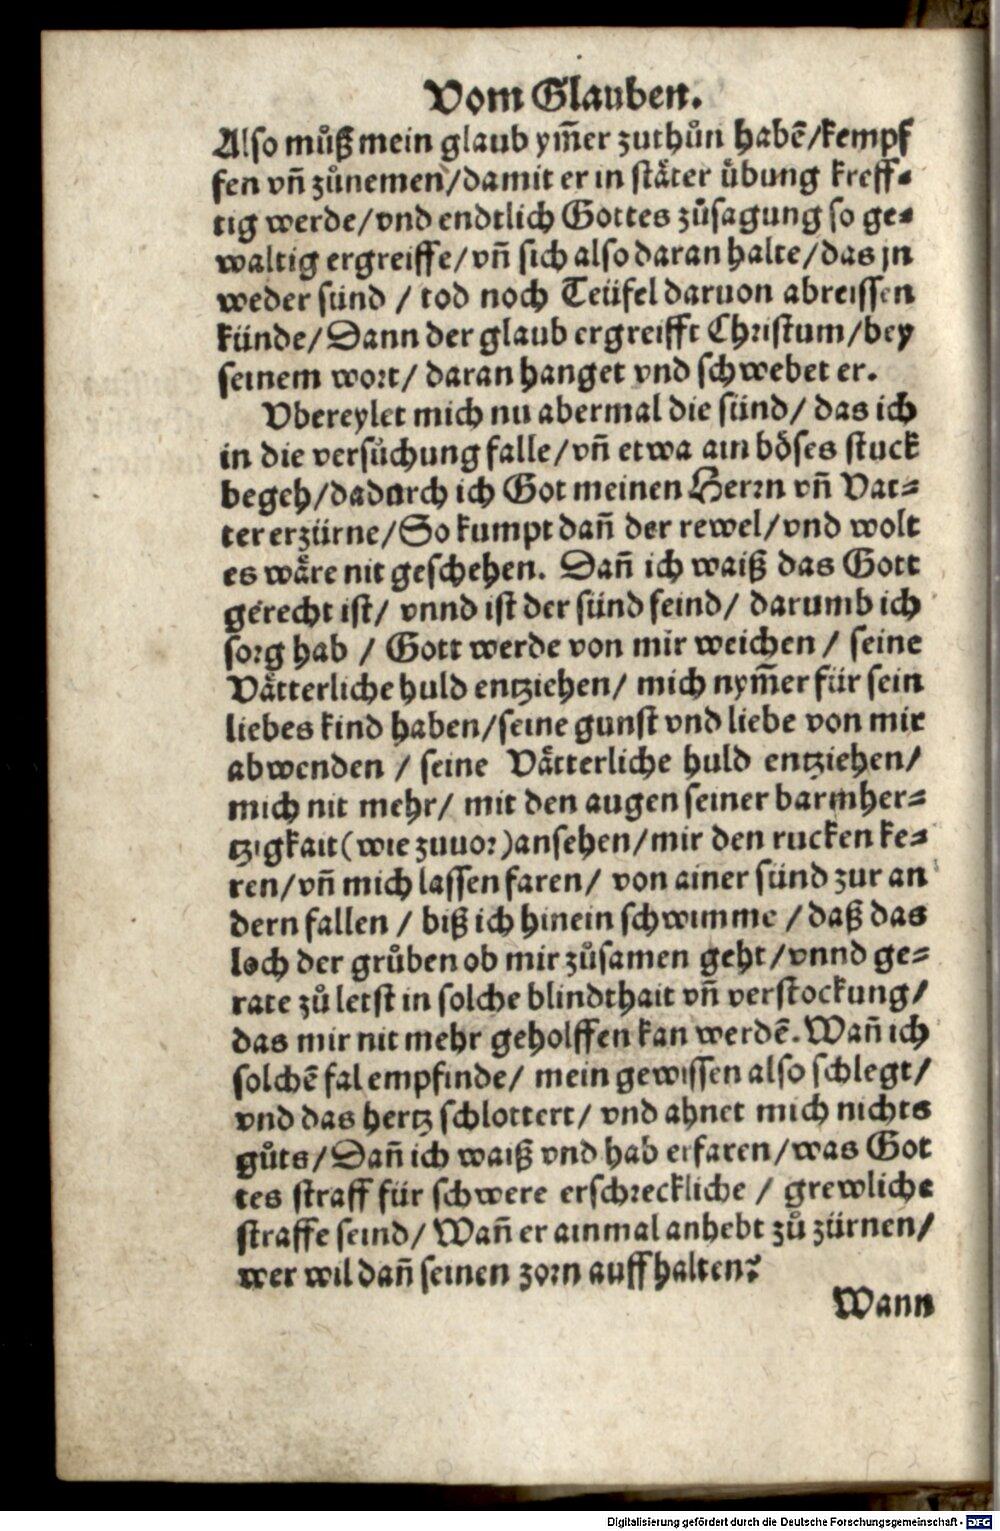 Vom Glauben.
Also můß mein glaub ym̃er zuthůn habẽ/kempf
fen vñ zůnemen/damit er in stäter übung kreff-
tig werde/vnd endtlich Gottes zůsagung so ge-
waltig ergreiffe/vñ sich also daran halte/das jn
weder sünd / tod noch Teüfel daruon abreissen
künde/Dann der glaub ergreifft Christum/bey
seinem wort/ daran hanget vnd schwebet er.
Vbereylet mich nu abermal die sünd/ das ich
in die versůchung falle/vñ etwa ain böses stuck
begeh/dadurch ich Got meinen Herrn vñ Vat-
ter erzürne/So kumpt dañ der rewel/vnd wolt
es wäre nit geschehen. Dañ ich waiß das Gott
gerecht ist/ vnnd ist der sünd feind/ darumb ich
sorg hab / Gott werde von mir weichen / seine
Vätterliche huld entziehen/ mich nym̃er für sein
liebes kind haben/seine gunst vnd liebe von mir
abwenden / seine Vätterliche huld entziehen/
mich nit mehr/ mit den augen seiner barmher-
tzigkait(wie zuuor)ansehen/mir den rucken ke-
ren/vñ mich lassen faren/ von ainer sünd zur an
dern fallen / biß ich hinein schwimme / daß das
loch der grůben ob mir zůsamen geht/vnnd ge-
rate zů letst in solche blindthait vñ verstockung/
das mir nit mehr geholffen kan werdẽ. Wañ ich
solchẽ fal empfinde/ mein gewissen also schlegt/
vnd das hertz schlottert/ vnd ahnet mich nichts
gůts/Dañ ich waiß vnd hab erfaren/was Got
tes straff für schwere erschreckliche / grewliche
straffe seind/ Wañ er ainmal anhebt zů zürnen/
wer wil dañ seinen zorn auff halten?
Wann
Digitalisierung gefördert durch die Deutsche Forschungsgemeinschaft - DFG